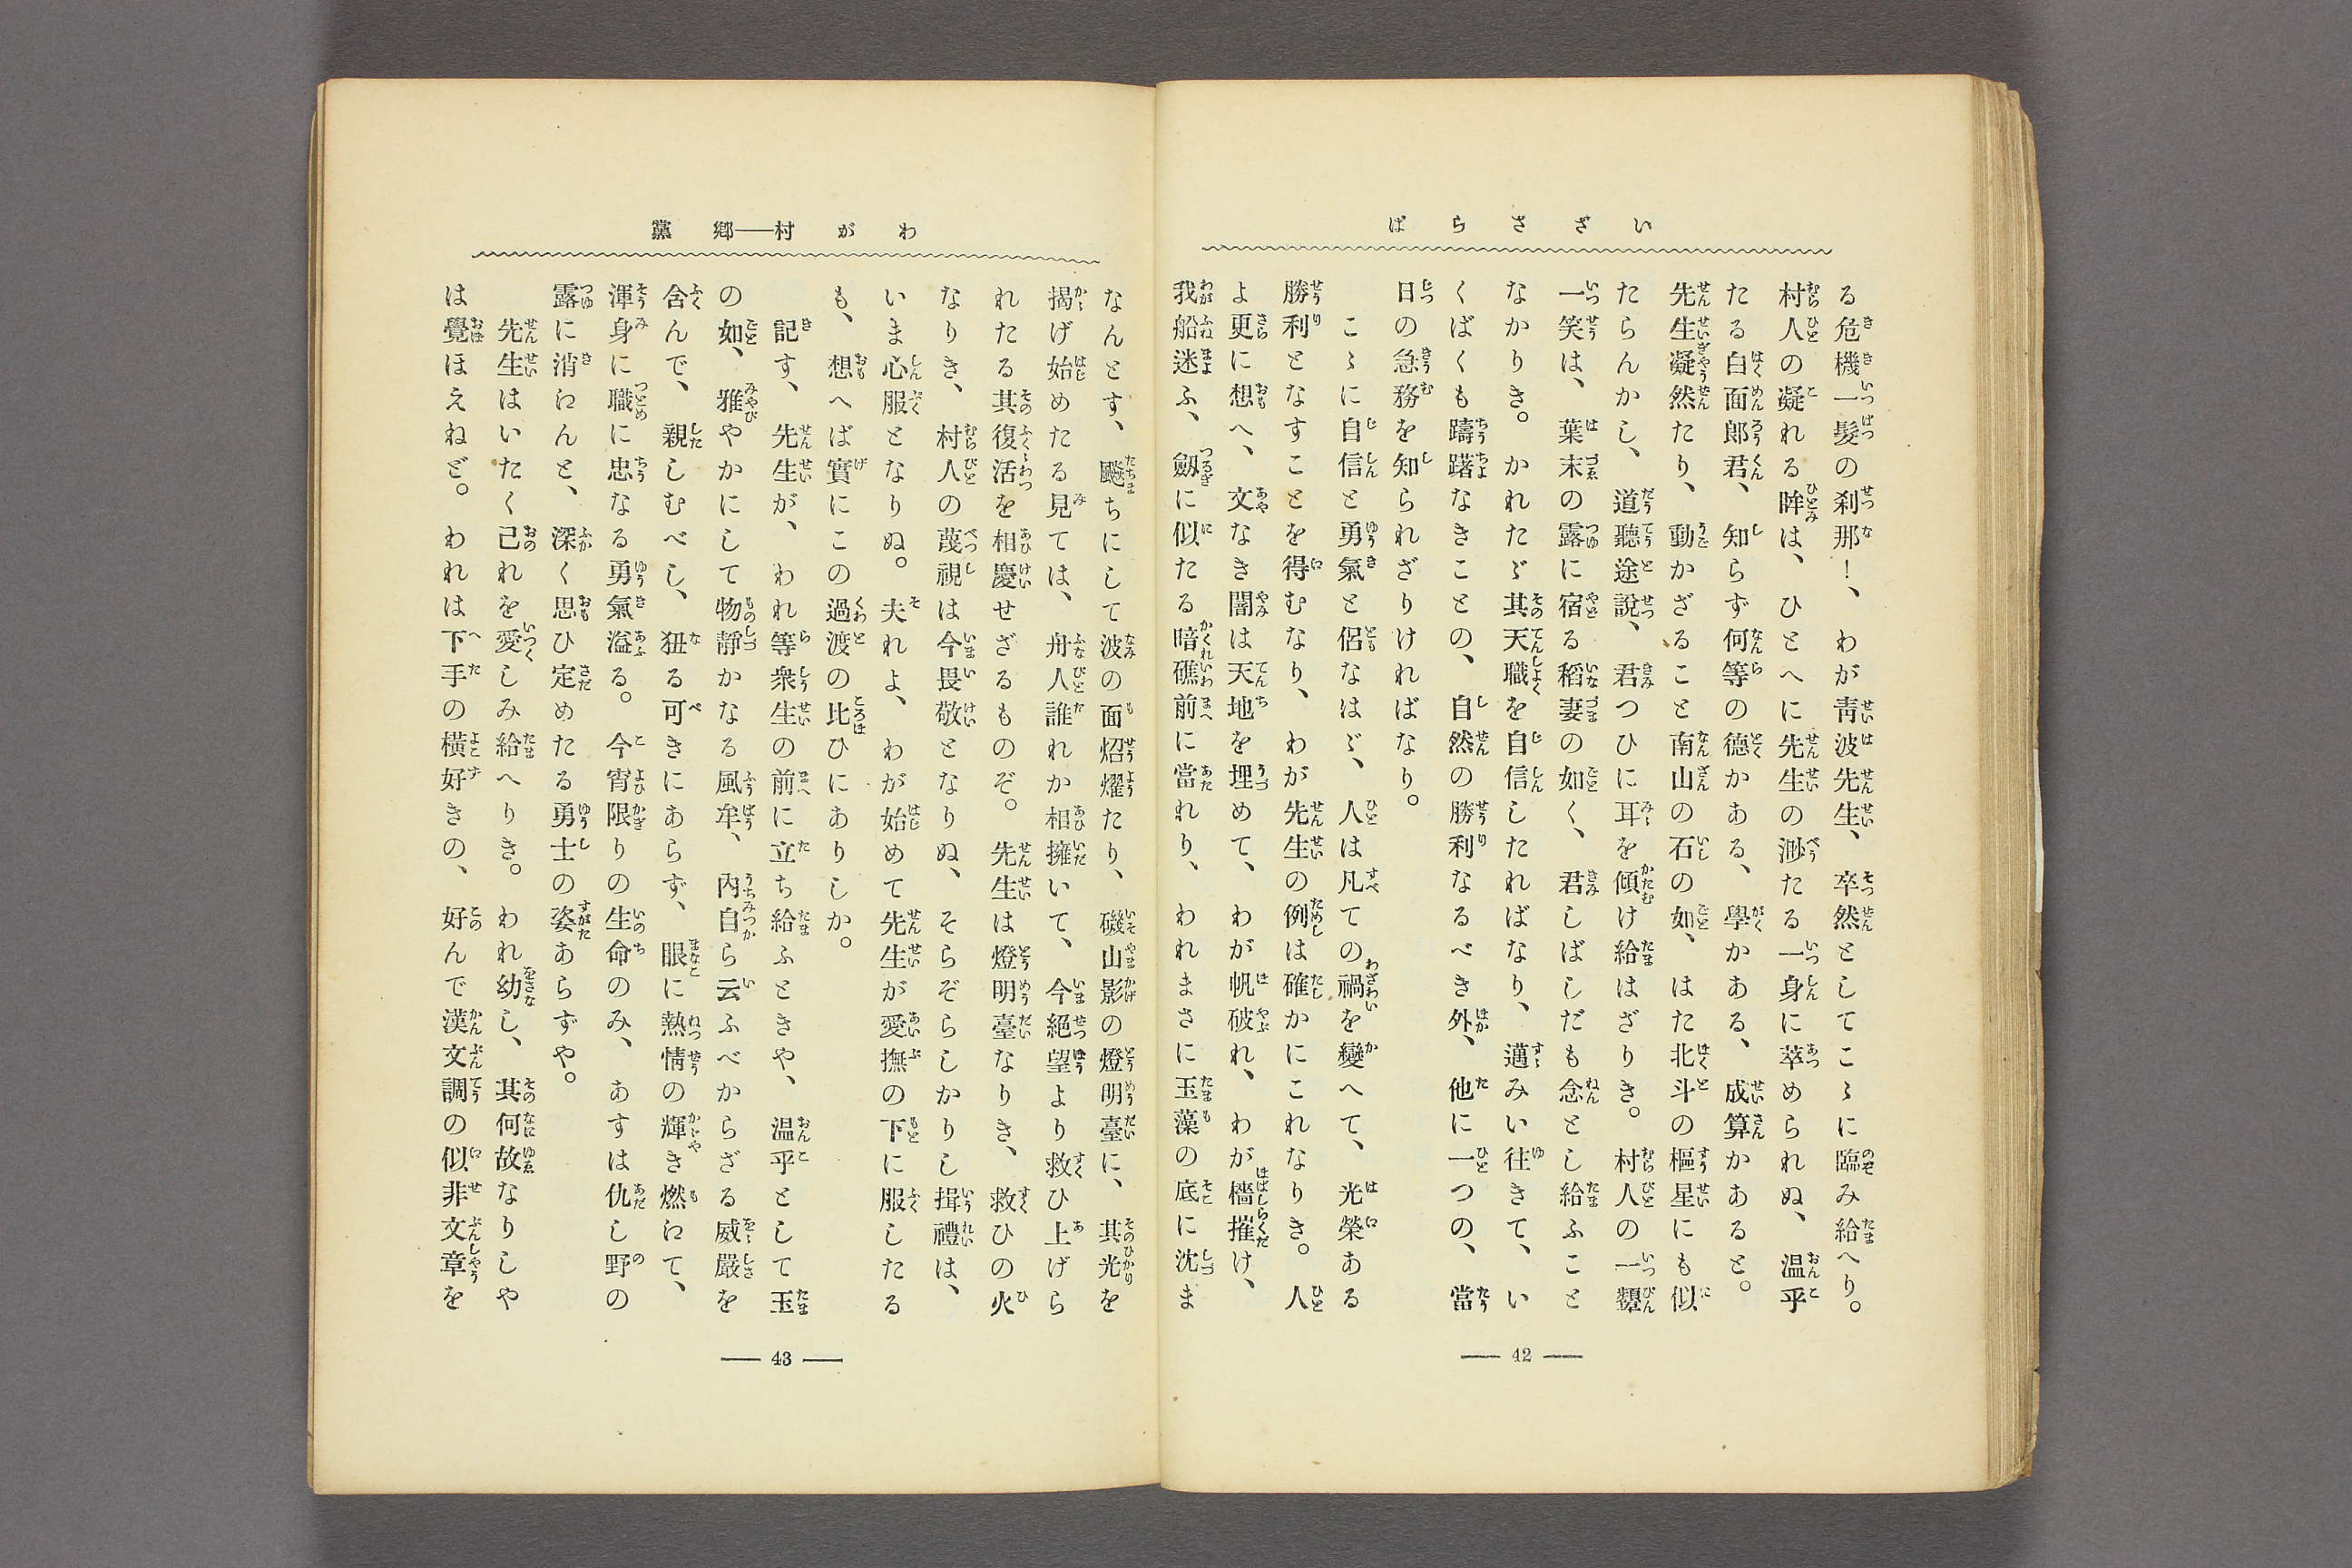 いさゞらば
る危機一髮の刹那！、わが靑波先生、卒然としてこゝに臨み給へり。
村人の凝れる眸は、ひとへに先生の渺たる一身に萃められぬ、温乎
たる白面郎君、知らず何等の德かある、學かある、成算かあると。
先生凝然たり、動かざること南山の石の如、はた北斗の樞星にも似
たらんかし、道聽途說、君つひに耳を傾け給はざりき。村人の一顰
一笑は、葉末の露に宿る稻妻の如く、君しばしだも念とし給ふこと
なかりき。かれたゞ其天職を自信したればなり、邁みい往きて、い
くばくも躊躇なきことの、自然の勝利なるべき外、他に一つの、當
日の急務を知られざりければなり。
こゝに自信と勇氣と侶なはゞ、人は凡ての禍を變へて、光榮ある
勝利となすことを得むなり、わが先生の例は確かにこれなりき。人
よ更に想へ、文なき闇は天地を埋めて、わが帆破れ、わが檣摧け、
我船迷ふ、劔に似たる暗礁前に當れり、われまさに玉藻の底に沈ま
42
わが村――鄕黨
なんとす、飈ちにして波の面炤燿たり、磯山影の燈明臺に、其光を
揭げ始めたる見ては、舟人誰れか相擁いて、今絕望より救ひ上げら
れたる其復活を相慶せざるものぞ。先生は燈明臺なりき、救ひの火
なりき、村人の蔑視は今畏敬となりぬ、そらぞらしかりし揖禮は、
いま心服となりぬ。夫れよ、わが始めて先生が愛撫の下に服したる
も、想へば實にこの過渡の比ひにありしか。
記す、先生が、われ等衆生の前に立ち給ふときや、温乎として玉
の如、雅やかにして物靜かなる風牟、內自ら云ふべからざる威嚴を
含んで、親しむべし、狃る可きにあらず、眼に熱情の輝き燃えて、
渾身に職に忠なる勇氣溢る。今宵限りの生命のみ、あすは仇し野の
露に消えんと、深く思ひ定めたる勇士の姿あらずや。
先生はいたく己れを愛しみ給へりき。われ幼し、其何故なりしや
は覺ほえねど。われは下手の橫好きの、好んで漢文調の似非文章を
43